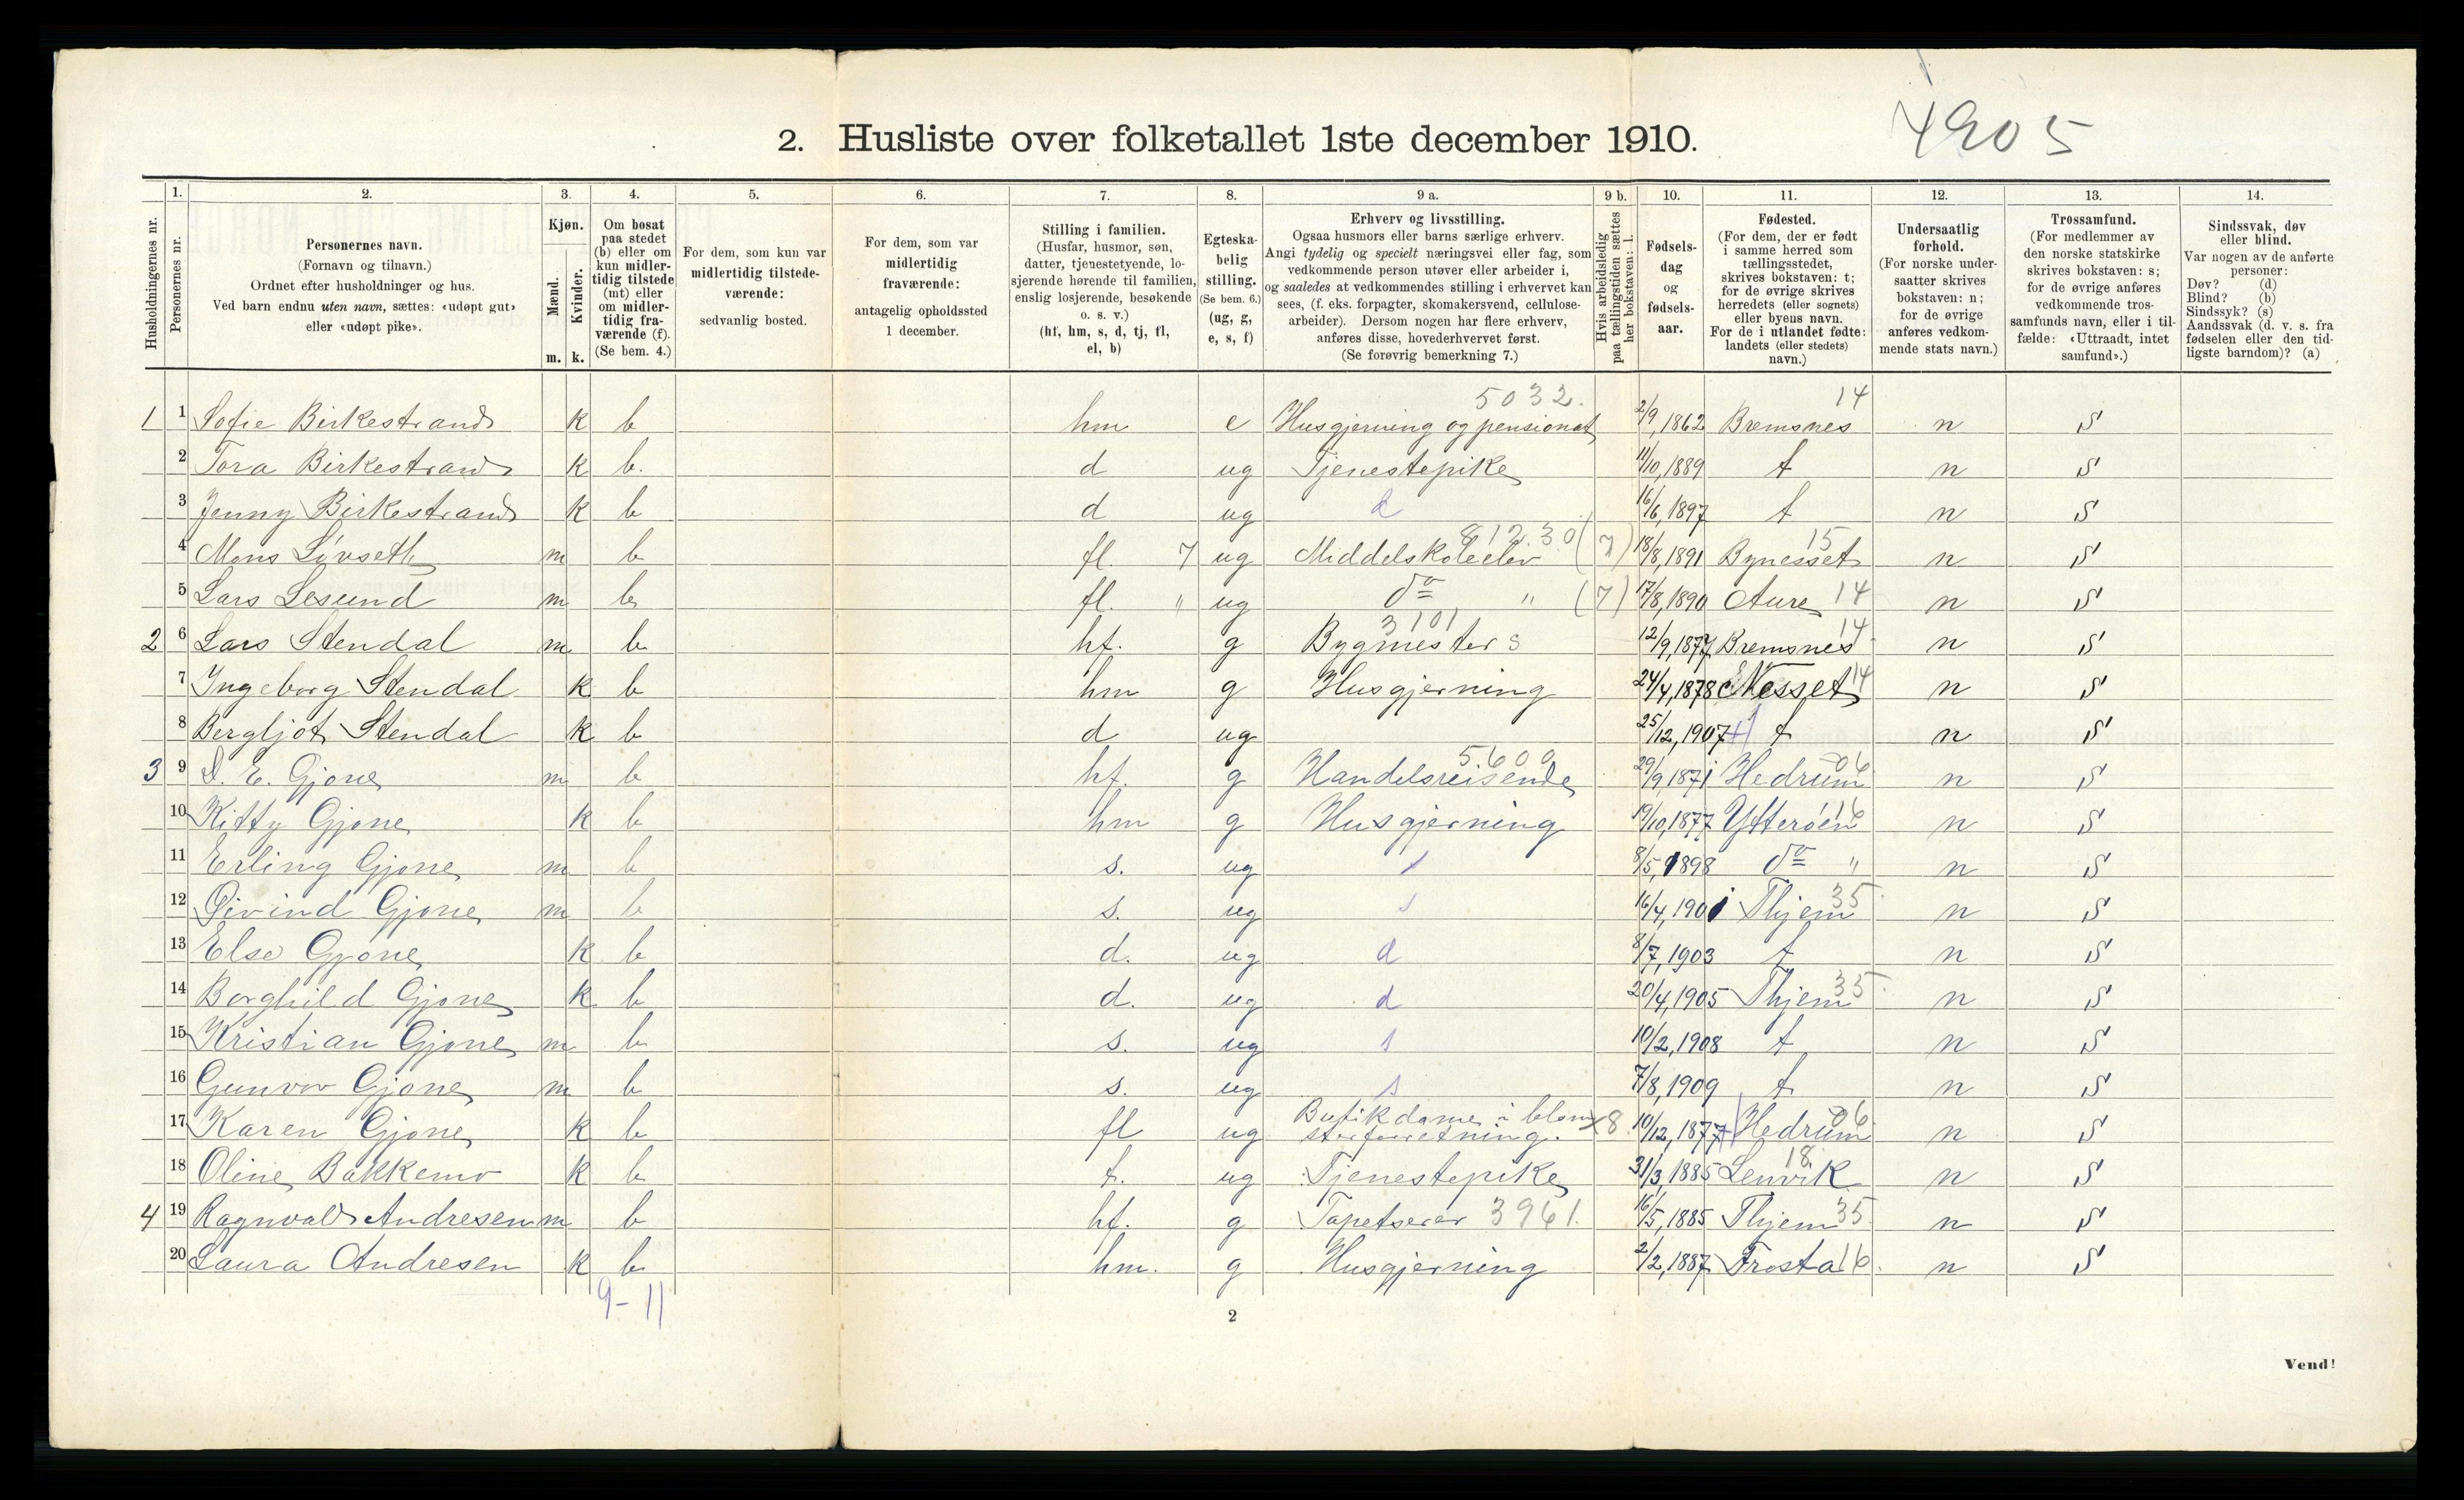 4905
2. Husliste over folketallet 1ste december 1910.
1. 2. 3. 4. 5. 6. 7. 8. 9 a. 9 b. 10. 11. 12. 13. 14.
Husholdningernes nr.
Personernes nr.
Personernes navn.
(Fornavn og tilnavn.)
Ordnet efter husholdninger og hus.
Ved barn endnu uten navn, sættes: «udøpt gut»
eller «udøpt pike».
Kjøn.
Mænd.
Kvinder.
m. k.
Om bosat
paa stedet
(b) eller om
kun midler-
tidig tilstede
(mt) eller
om midler-
tidig fra-
værende (f).
(Se bem. 4.)
For dem, som kun var
midlertidig tilstede-
værende:
sedvanlig bosted.
For dem, som var
midlertidig
fraværende:
antagelig opholdssted
1 december.
Stilling i familien.
(Husfar, husmor, søn,
datter, tjenestetyende, lo-
sjerende hørende til familien,
enslig losjerende, besøkende
o. s. v.)
(hf, hm, s, d, tj, fl,
el, b)
Egteska-
belig
stilling.
(Se bem. 6.)
(ug, g,
e, s, f)
Erhverv og livsstilling.
Ogsaa husmors eller barns særlige erhverv.
Angi tydelig og specielt næringsvei eller fag, som
vedkommende person utøver eller arbeider i,
og saaledes at vedkommendes stilling i erhvervet kan
sees, (f. eks. forpagter, skomakersvend, cellulose-
arbeider). Dersom nogen har flere erhverv,
anføres disse, hovederhvervet først.
(Se forøvrig bemerkning 7.)
Hvis arbeidsledig
paa tællingstiden sættes
her bokstaven: l.
Fødsels-
dag
og
fødsels-
aar.
Fødested.
(For dem, der er født
i samme herred som
tællingsstedet,
skrives bokstaven: t;
for de øvrige skrives
herredets (eller sognets)
eller byens navn.
For de i utlandet fødte:
landets (eller stedets)
navn.)
Undersaatlig
forhold.
(For norske under-
saatter skrives
bokstaven: n;
for de øvrige
anføres vedkom-
mende stats navn.)
Trossamfund.
(For medlemmer av
den norske statskirke
skrives bokstaven: s;
for de øvrige anføres
vedkommende tros-
samfunds navn, eller i til-
fælde: «Uttraadt, intet
samfund».)
Sindssvak, døv
eller blind.
Var nogen av de anførte
personer:
Døv? (d)
Blind? (b)
Sindssyk? (s)
Aandssvak (d. v. s. fra
fødselen eller den tid-
ligste barndom)? (a)
5032. 14
1 1 Sofie Birkestrand k b hm e Husgjerning og pensionat 2/9, 1862 Bremsnes n S
2 Tora Birkestrand k b. d ug Tjenestepike 11/10, 1889 t n S
3 Jenny Birkestrand k b d ug d 16/6, 1897 t n S
812.30 15
4 Mons Lövseth m b fl. 7 ug Middelskoleelev (7) 18/8, 1891 Bynesset n S
5 Lars Lesund m b fl. " ug do " (7) 17/8, 1890 Aure 14 n S
3101 14
2 6 Lars Stendal m b hf. g Bygmester s 12/9, 1877 Bremsnes n S
7 Ingeborg Stendal k b hm g Husgjerning 24/4, 1878 Nesset 14 n S
8 Bergljot Stendal k b d ug 25/12, 1907 t n S
5.600 06
3 9 D. E. Gjone m b hf. g Handelsreisende 29/9, 1871 Hedrum n S
10 Kitty Gjone k b hm g Husgjerning 19/10, 1877 Ytterøen 16 n S
11 Erling Gjone m b s. ug s 8/5, 1898 do " n S
12 Øivind Gjone m b s. ug s 16/4, 1901 Thjem 35 n S
13 Else Gjone k b d. ug d 8/7, 1903 t n S
14 Borghild Gjone k b d. ug d 20/4, 1905 Thjem 35 n S
15 Kristian Gjone m b s. ug s 10/2, 1908 t n S
16 Gunvor Gjone m b s. ug s 7/8, 1909 t n S
17 Karen Gjone k b fl ug Butikdame i blom- x8 10/12, 1877 Hedrum 06 n S
sterforretning.
18 Oline Bakkemo k b t. ug Tjenestepike 31/3, 1885 Lenvik 18 n S
4 19 Ragnvald Andresen m b hf. g Tapetserer 3961. 16/5, 1885 Thjem 35 n S
20 Laura Andresen k b hm. g Husgjerning 2/2, 1887 Frosta 16. n S
9-11
2
Vend!